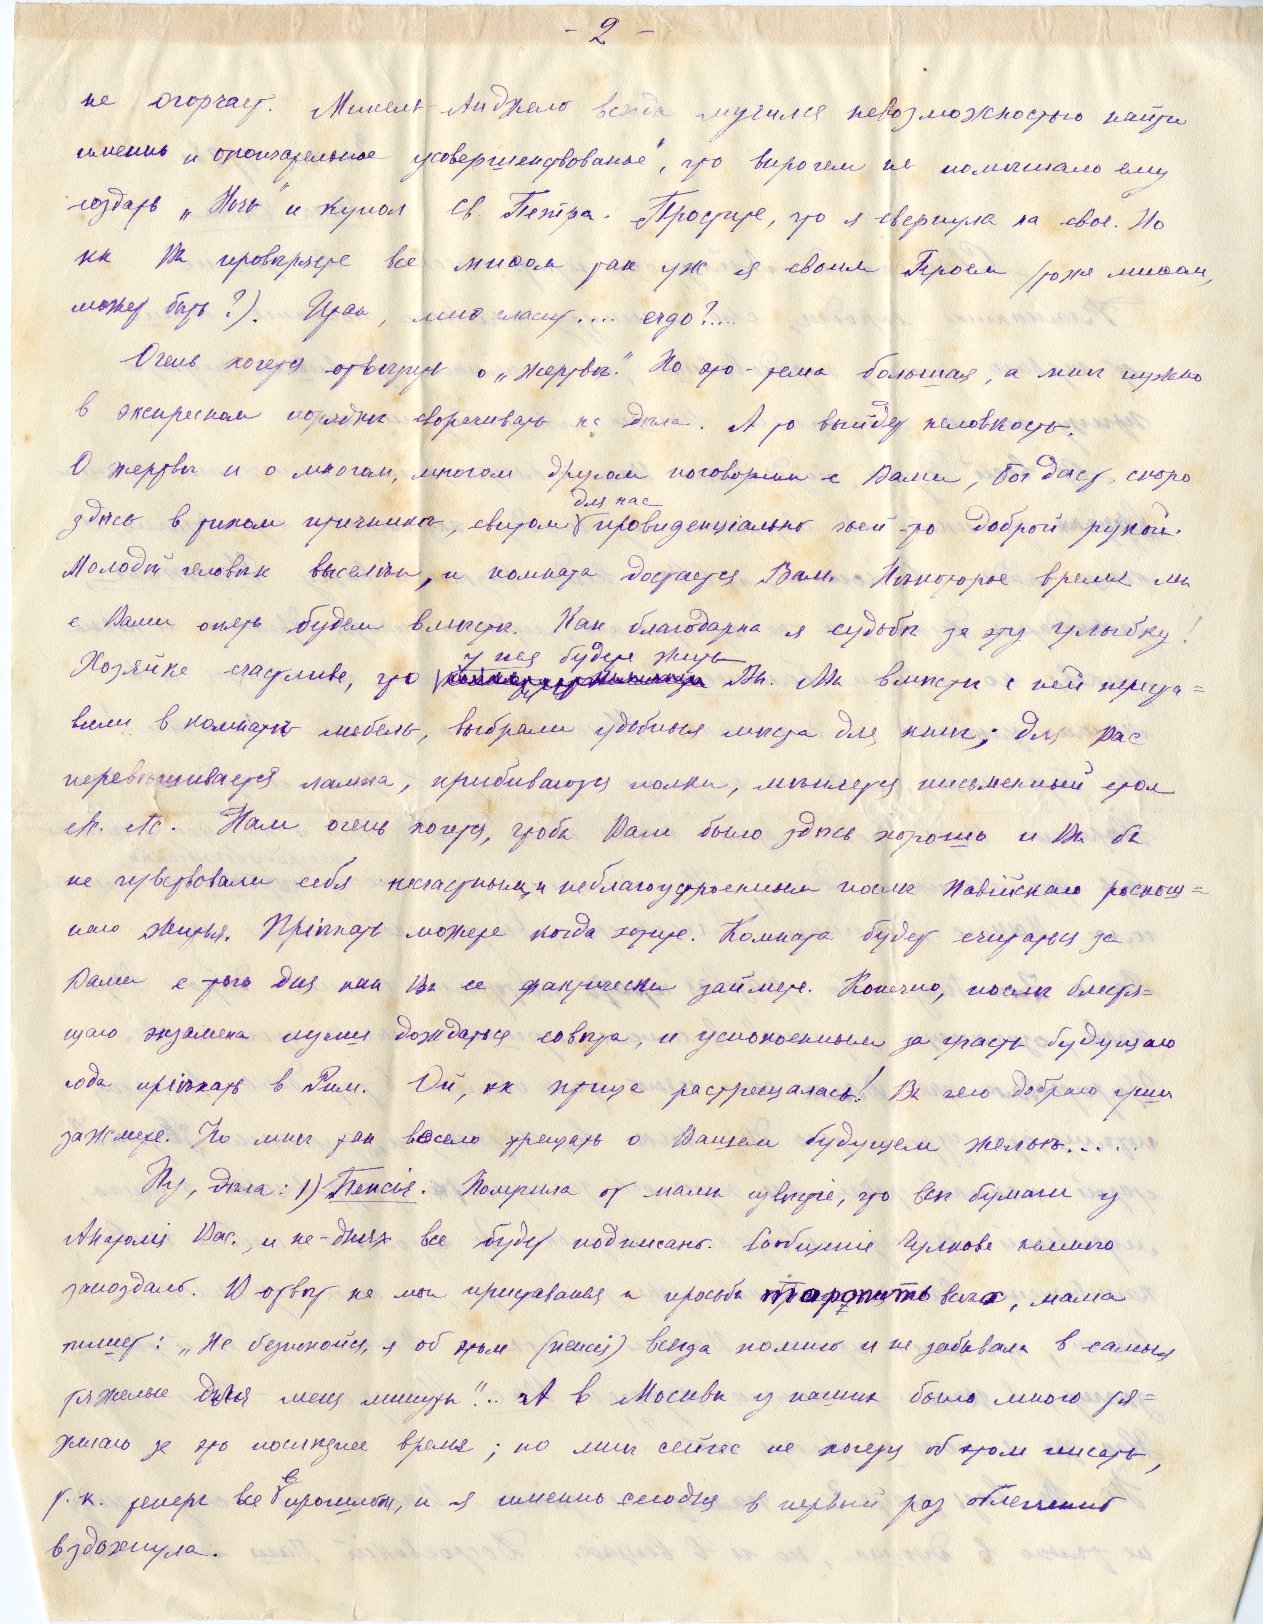 - 2 -
не огорчает. Микель-Анджело всегда мучился невозможностью найти
именно „окончательное усовершенствованье", что впрочем не помѣшало ему
создать „Ночь" и купол Св. Петра. Простите, что я свернула на свое. Но
как Вы провѣряете все мифом так уж я своим Героем (тоже мифом,
может быть?). Итак, мпо гласит.... ендо?...
Очень хочется отвѣтить о „жертвѣ". Но это - тема большая, а мнѣ нужно
в экспресном порядкѣ сворачивать на дѣла. А то выйдет неловкость.
О жертвѣ и о многом, многом другом поговорим с Вами, Бог даст, скоро
здѣсь в тихом птичникѣ, свитом для нас провиденціально чьей-то доброй рукой.
Молодой человѣк выселен, и комната достается Вам. Нѣкоторое время мы
с Вами опять будем вмѣстѣ. Как благодарна я судьбѣ за эту улыбку!
Хозяйка счастлива, что у нея будете жить Вы. Мы вмѣстѣ с ней переста=
вили в комнатѣ мебель, выбрали удобныя мѣста для книг; для Вас
перевѣшивается лампа, прибиваются полки, мѣняется письменный стол
Нам очень хочется, чтобы Вам было здѣсь хорошо и Вы бы
не чувствовали себя несчастным и неблагоустроенным послѣ Павійскаго роскош=
наго житья. Пріѣхать можете когда хотите. Комната будет считаться за
Вами с того дня как Вы ее фактически займете. Конечно, послѣ блестя=
щаго экзамена лучше дождаться совѣта, и успокоенным за участь будущаго
года пріѣхать в Рим. Ой, как птица растрещалась! Вы чего добраго уши
зажмете. Но мнѣ так весело трещать о Вашем будущем жильѣ.....
Ну, дѣла: 1) Пенсія. Получила от мамы извѣстіе, что всѣ бумаги у
Анатолія Вас., и на-днях все будет подписано. Сообщеніе Чулкова немного
запоздало. В отвѣт на мои приставанья и просьбы торопить всѣх, мама
пишет: „Не безпокойся, я об этом (пенсія) всегда помню и не забывала в самыя
тяжелыя для меня минуты"... А в Москвѣ у наших было много тя=
желаго за это послѣднее время; но мнѣ сейчас не хочется об этом писать,
т. к. теперь все в прошлом, и я именно сегодня в первый раз облегченно
вздохнула.